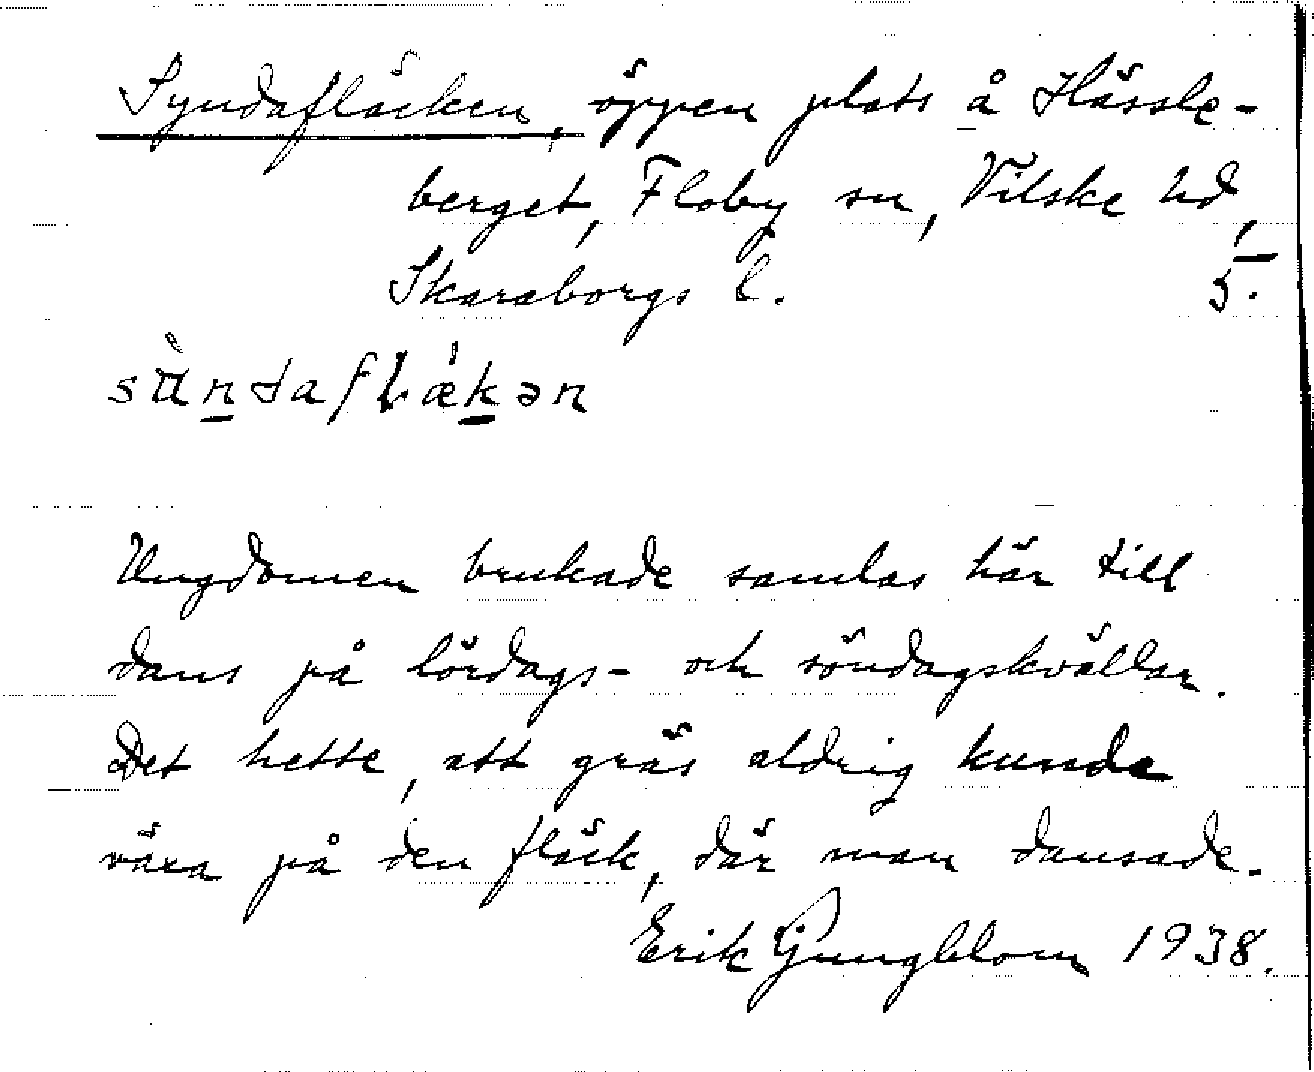 Syndafläcken, öppen plats å Hässle-
berget, Floby sn, Vilske hd,
Skaraborgs l. 5.
sʉ̀ndaflǽkən
Ungdomen brukade samlas här till
dans på lördags- och söndagskvällar.
Det hette, att gräs aldrig kunde
växa på den fläck, där man dansade.
Erik Ljungblom 1938.